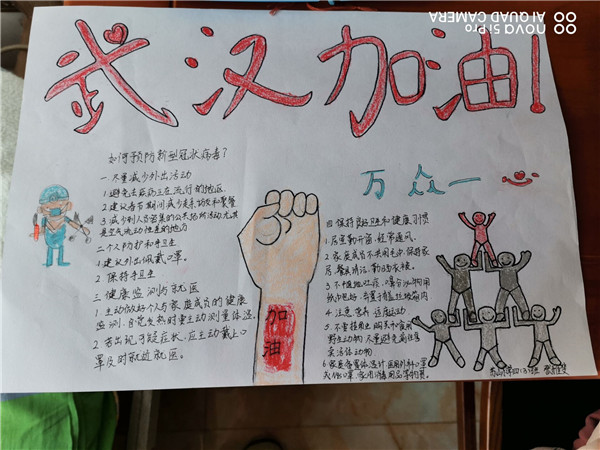 nova 5i Pro
AI QUAD CAMERA
武汉加油!
如何预防新型冠状病毒?
万众一
一.尽量减少外出活动
1.避免去疾病正在流行的地区.
2.建议春节期间减少走亲访友和聚餐
3.减少到人员密集的公共场所活动,尤其
是空气流动性差的地方
二个人防护和手卫生
1.建议外出佩戴口罩。
2.保持手卫生
三 健康监测与就医
1.主动做好个人与家庭成员的健康
监测,自觉发热时要主动测量体温.
2.若出现可疑症状,应主动戴上口
罩及时就近就医。
加
油
四 保持良好卫生和健康习惯
1.居室勤开窗,经常通风.
2.家庭成员不共用毛巾,保持家
居、餐具清洁,勤晒衣被.
3.不随地吐痰,口鼻分泌物用
纸巾包好,弃置于有盖垃圾箱内
4.注意营养,适度运动
5.不要接触、购买和食用
野生动物,尽量避免前往售
卖活体动物
6.家庭备置体温计,医用外科口罩
家用消毒用品等物资.